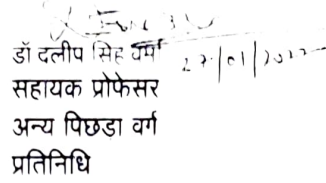 डॉ दलीप सिंह वर्मा
27/01/2022
सहायक प्रोफेसर
अन्य पिछडा वर्ग
प्रतिनिधि